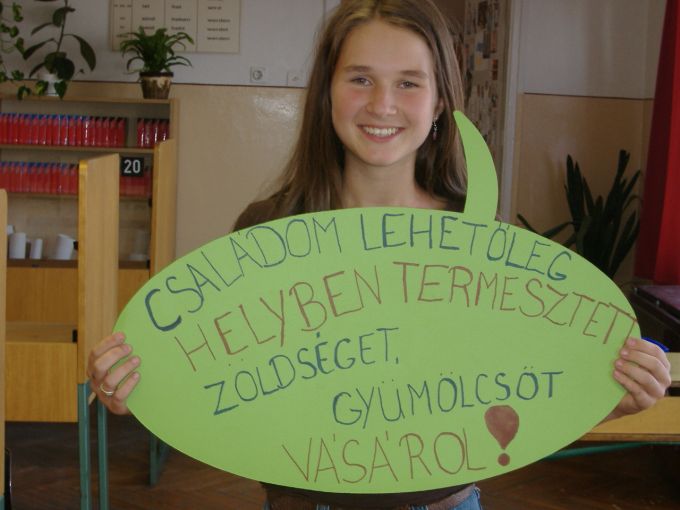 20
CSALÁDOM LEHETŐLEG
HELYBEN TERMESZTETT
ZÖLDSÉGET,
GYÜMÖLCSÖT
VÁSÁROL!